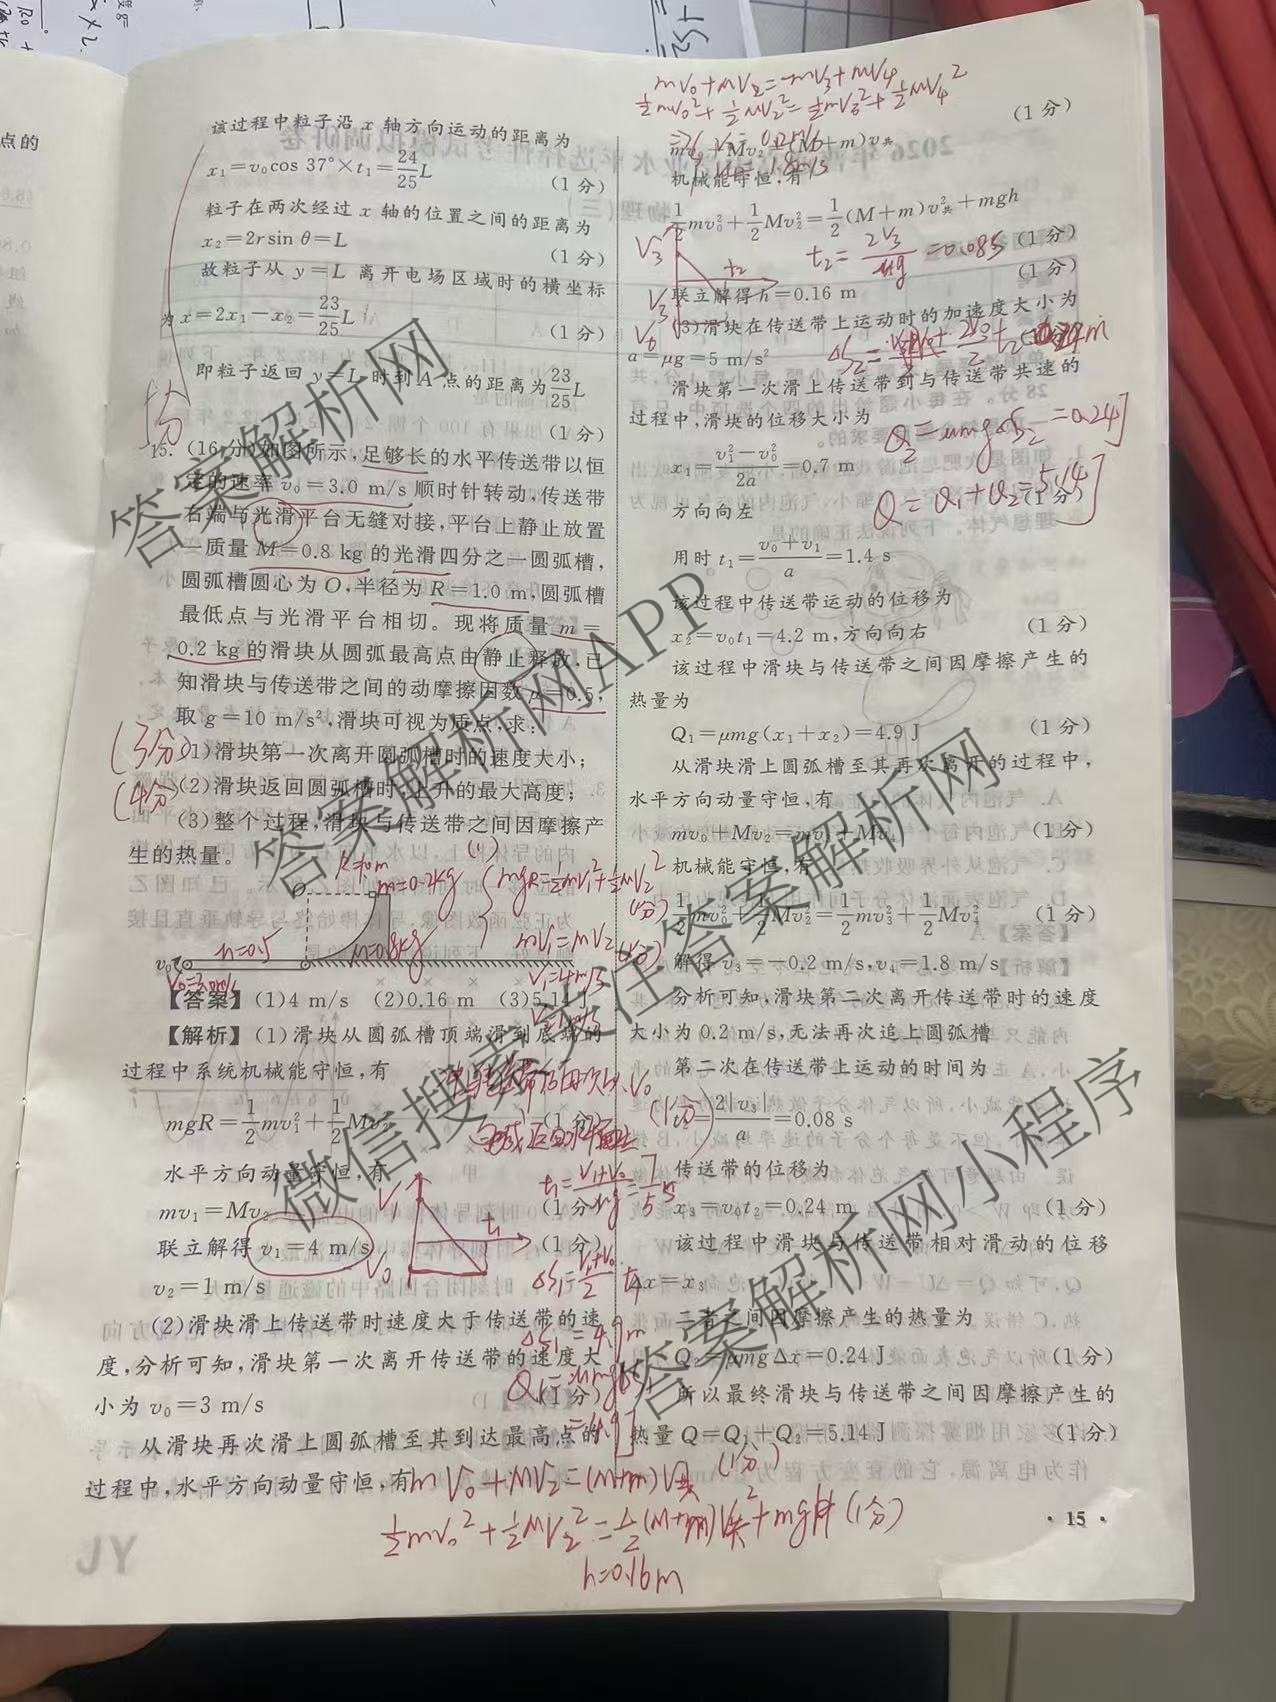 该过程中粒子沿 x 轴方向运动的距离为
x₁=v₀cos 37°×t₁=24/25L
(1 分)
粒子在两次经过 x 轴的位置之间的距离为
x₂=2rsin θ=L
(1 分)
故粒子从 y=L 离开电场区域时的横坐标
为x=2x₁-x₂=23/25L
(1 分)
即粒子返回 y=L 时到 A 点的距离为23/25L
(1 分)
15. (16 分)如图所示,足够长的水平传送带以恒
定的速率 v₀=3.0 m/s 顺时针转动,传送带
右端与光滑平台无缝对接,平台上静止放置
一质量 M=0.8 kg 的光滑四分之一圆弧槽,
圆弧槽圆心为 O,半径为 R=1.0 m,圆弧槽
最低点与光滑平台相切。现将质量 m=
0.2 kg 的滑块从圆弧最高点由静止释放,已
知滑块与传送带之间的动摩擦因数 μ=0.5,
取 g=10 m/s²,滑块可视为质点,求:
(3分)
(1)滑块第一次离开圆弧槽时的速度大小;
(4分)
(2)滑块返回圆弧槽时,上升的最大高度;
(3)整个过程,滑块与传送带之间因摩擦产
生的热量。
m=0.2kg
M=0.8kg
(1)
mgR=½mv₁²+½MV₂²
(1分)
mv₁=MV₂
V₁=4m/s
【答案】(1)4 m/s (2)0.16 m (3)5.14 J
【解析】(1)滑块从圆弧槽顶端滑到底端的
过程中系统机械能守恒,有
mgR=1/2mv₁²+1/2Mv₂²
(1 分)
水平方向动量守恒,有
mv₁=Mv₂
(1 分)
联立解得 v₁=4 m/s
(1 分)
v₂=1 m/s
t₁
V₀
(2)滑块滑上传送带时速度大于传送带的速
度,分析可知,滑块第一次离开传送带的速度大
小为 v₀=3 m/s
(1 分)
从滑块再次滑上圆弧槽至其到达最高点的
过程中,水平方向动量守恒,有
mV₀+MV₂=(M+m)V共 (1分)
½mv₀²+½MV₂²=½(M+m)V共²+mgh (1分)
h=0.16m
mv₀+MV₂=-mV₃+MV₄
½mv₀²+½MV₂²=½mV₃²+½MV₄²
(1 分)
mv₀+Mv₂=(M+m)v共
机械能守恒,有
1/2mv₀²+1/2Mv₂²=1/2(M+m)v共²+mgh
(1 分)
t₂=2V₃/μg=0.08s
联立解得 h=0.16 m
(1 分)
(3)滑块在传送带上运动时的加速度大小为
a=μg=5 m/s²
滑块第一次滑上传送带到与传送带共速的
过程中,滑块的位移大小为
x₁=(v₁²-v₀²)/2a=0.7 m
方向向左
(1 分)
Q₂=μmgΔS₂=0.24J
Q=Q₁+Q₂=5.14J
用时 t₁=(v₀+v₁)/a=1.4 s
该过程中传送带运动的位移为
x₂=v₀t₁=4.2 m,方向向右
(1 分)
该过程中滑块与传送带之间因摩擦产生的
热量为
Q₁=μmg(x₁+x₂)=4.9 J
(1 分)
从滑块滑上圆弧槽至其再次离开的过程中,
水平方向动量守恒,有
mv₀+Mv₂=mv₃+Mv₄
(1 分)
机械能守恒,有
1/2mv₀²+1/2Mv₂²=1/2mv₃²+1/2Mv₄²
(1 分)
解得 v₃=-0.2 m/s,v₄=1.8 m/s
分析可知,滑块第二次离开传送带时的速度
大小为 0.2 m/s,无法再次追上圆弧槽
第二次在传送带上运动的时间为
2|v₃|/a=0.08 s
传送带的位移为
x₃=v₀t₂=0.24 m
(1 分)
该过程中滑块与传送带相对滑动的位移
Δx=x₃
二者之间因摩擦产生的热量为
Q₂=μmgΔx=0.24 J
(1 分)
所以最终滑块与传送带之间因摩擦产生的
热量 Q=Q₁+Q₂=5.14 J
(1 分)
· 15 ·
JY
答案解析网
答案解析网APP
微信搜索关注答案解析网
答案解析网小程序